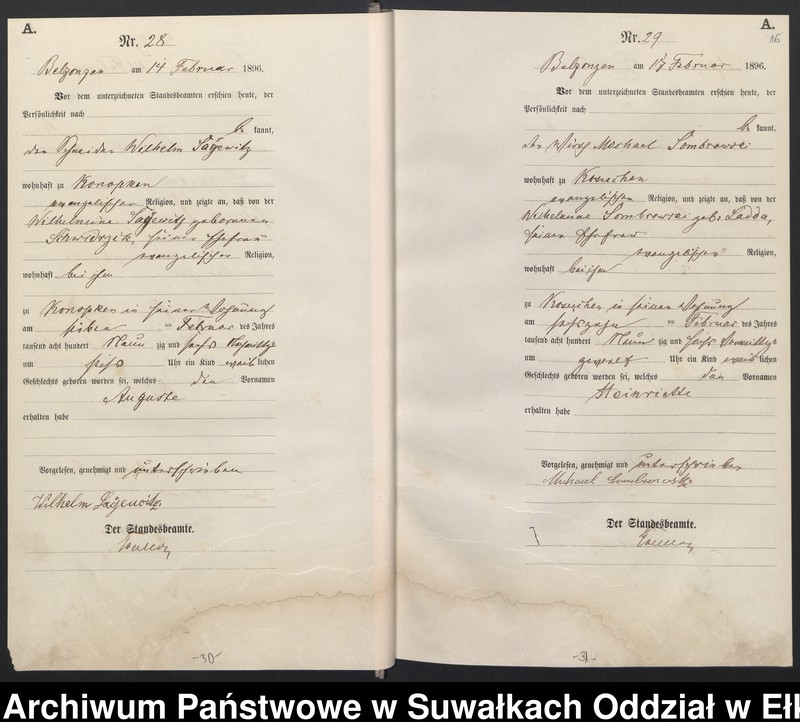 A.
Nr. 28
Belzonzen am 14 Februar 1896.
Vor dem unterzeichneten Standesbeamten erschien heute, der
Persönlichkeit nach
be kannt,
der Schneider Wilhelm Sayewitz
wohnhaft zu Konopken
evangelischer Religion, und zeigte an, daß von der
Wilhelmine Sayewitz geborenen
seiner Ehefrau
evangelischer Religion,
wohnhaft bei ihm
zu Konopken in seiner Wohnung
am sieben ten Februar des Jahres
tausend acht hundert Neun zig und sechs Nachmittags
um sechs Uhr ein Kind weib lichen
Geschlechts geboren worden sei, welches den Vornamen
Auguste
erhalten habe
Vorgelesen, genehmigt und unterschrieben
Wilhelm Sayewitz.
Der Standesbeamte.
-30-
A.
Nr. 29
Belzonzen am 17 Februar 1896.
Vor dem unterzeichneten Standesbeamten erschien heute, der
Persönlichkeit nach
be kannt,
der Wirth Michael Sombrowski
wohnhaft zu Koschen
evangelischer Religion, und zeigte an, daß von der
Wilhelmine Sombrowski geb. Ladda,
seiner Ehefrau
evangelischer Religion,
wohnhaft bei ihm
zu Koschen in seiner Wohnung
am sechszehn ten Februar des Jahres
tausend acht hundert Neun zig und sechs Vormittags
um zwoelf Uhr ein Kind weib lichen
Geschlechts geboren worden sei, welches den Vornamen
Heinriette
erhalten habe
Vorgelesen, genehmigt und unterschrieben
Michael Sombrowski
Der Standesbeamte.
-31-
Archiwum Państwowe w Suwałkach Oddział w Ełk